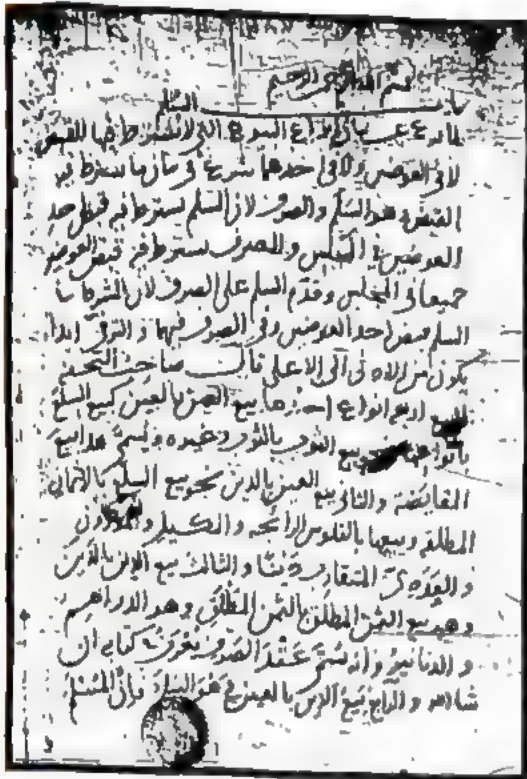 بسم الله الرحمن الرحيم
باب السلم
لما فرغ عن بيان انواع البيوع التى لا يشترط فيها القبض
لا فى العوضين ولا فى احدهما شرع فى بيان ما يشترط فيه
القبض وهو السلم والصرف لان السلم يشترط فيه قبض احد
العوضين فى المجلس والصرف يشترط فيه قبض العوضين
جميعا فى المجلس وقدم السلم على الصرف لان الشرط فى
السلم قبض احد العوضين وفى الصرف فيهما والترقى ابدا
يكون من الادنى الى الاعلى قال صاحب التحفة
البيع اربعة انواع احدها بيع العين بالعين كبيع السلع
بانواعها بيع الثوب بالثوب وغيره ويسمى هذا بيع
المقايضة والثانى بيع العين بالدين نحو بيع السلع بالاثمان
المطلقة وبيعها بالفلوس الرائجة والمكيل والموزون
والعددى المتقارب دينا والثالث بيع الدين بالدين
وهو بيع الثمن المطلق بالثمن المطلق وهو الدراهم
والدنانير وانه يسمى عقد الصرف يعرف فى كتابه ان
شاء الله والرابع بيع الدين بالعين وهو السلم فان المسلم